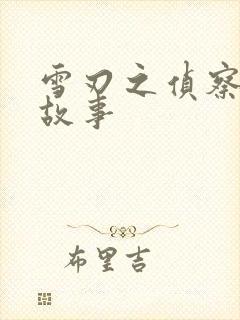 雪刃之偵察
故事
布里吉